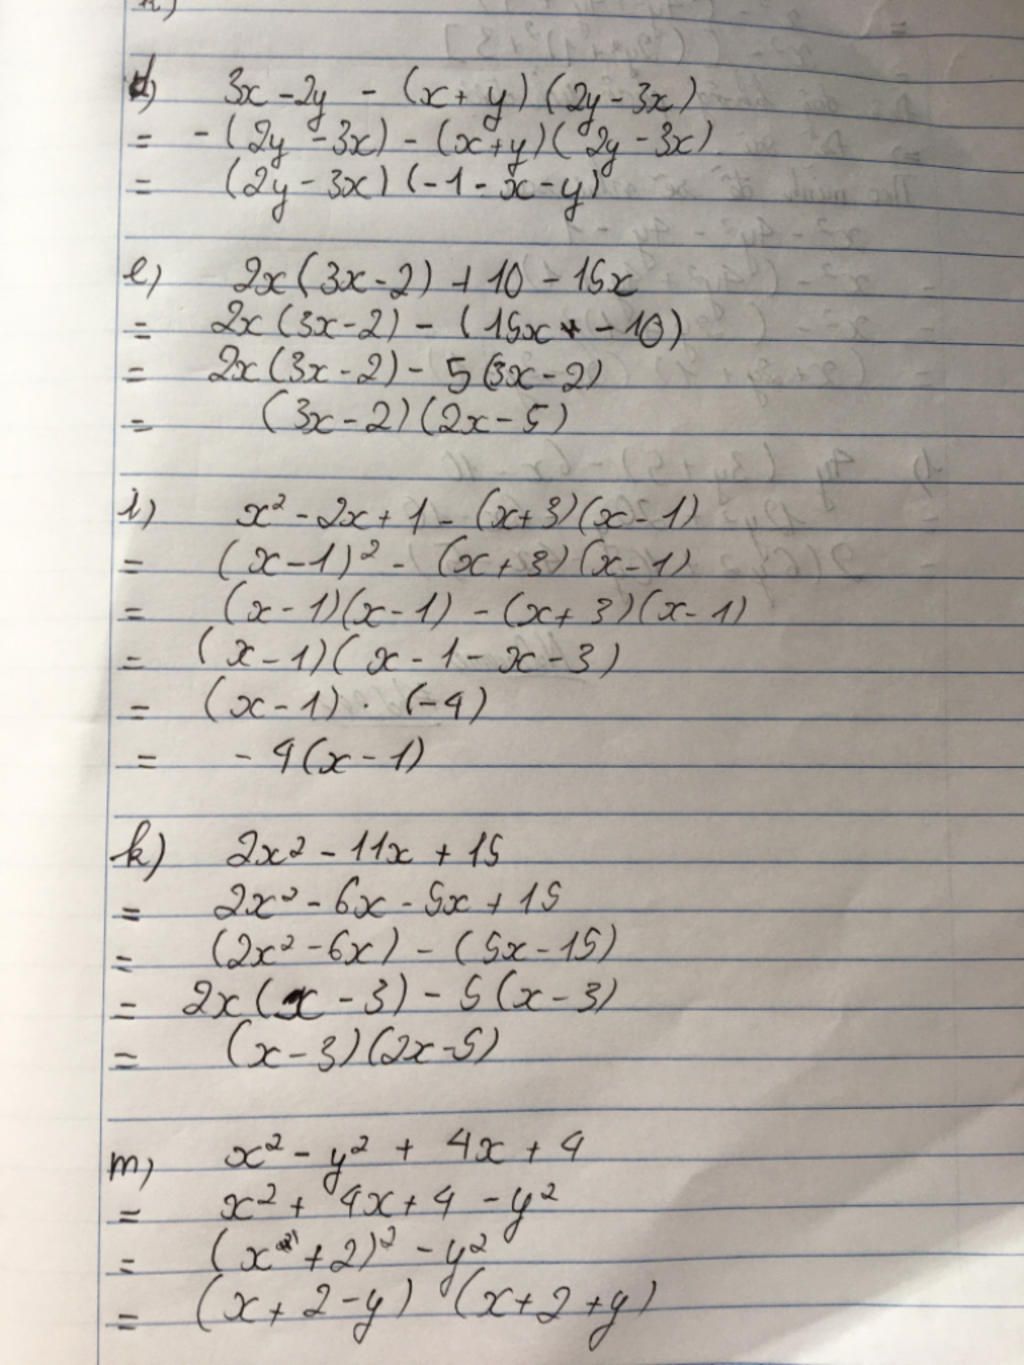 d) 3x - 2y - (x + y)(2y - 3x)
= -(2y - 3x) - (x + y)(2y - 3x)
= (2y - 3x)(-1 - x - y)
e) 2x(3x - 2) + 10 - 15x
= 2x(3x - 2) - (15x - 10)
= 2x(3x - 2) - 5(3x - 2)
= (3x - 2)(2x - 5)
i) x² - 2x + 1 - (x + 3)(x - 1)
= (x - 1)² - (x + 3)(x - 1)
= (x - 1)(x - 1) - (x + 3)(x - 1)
= (x - 1)(x - 1 - x - 3)
= (x - 1) . (-4)
= -4(x - 1)
k) 2x² - 11x + 15
= 2x² - 6x - 5x + 15
= (2x² - 6x) - (5x - 15)
= 2x(x - 3) - 5(x - 3)
= (x - 3)(2x - 5)
m) x² - y² + 4x + 4
= x² + 4x + 4 - y²
= (x + 2)² - y²
= (x + 2 - y) (x + 2 + y)